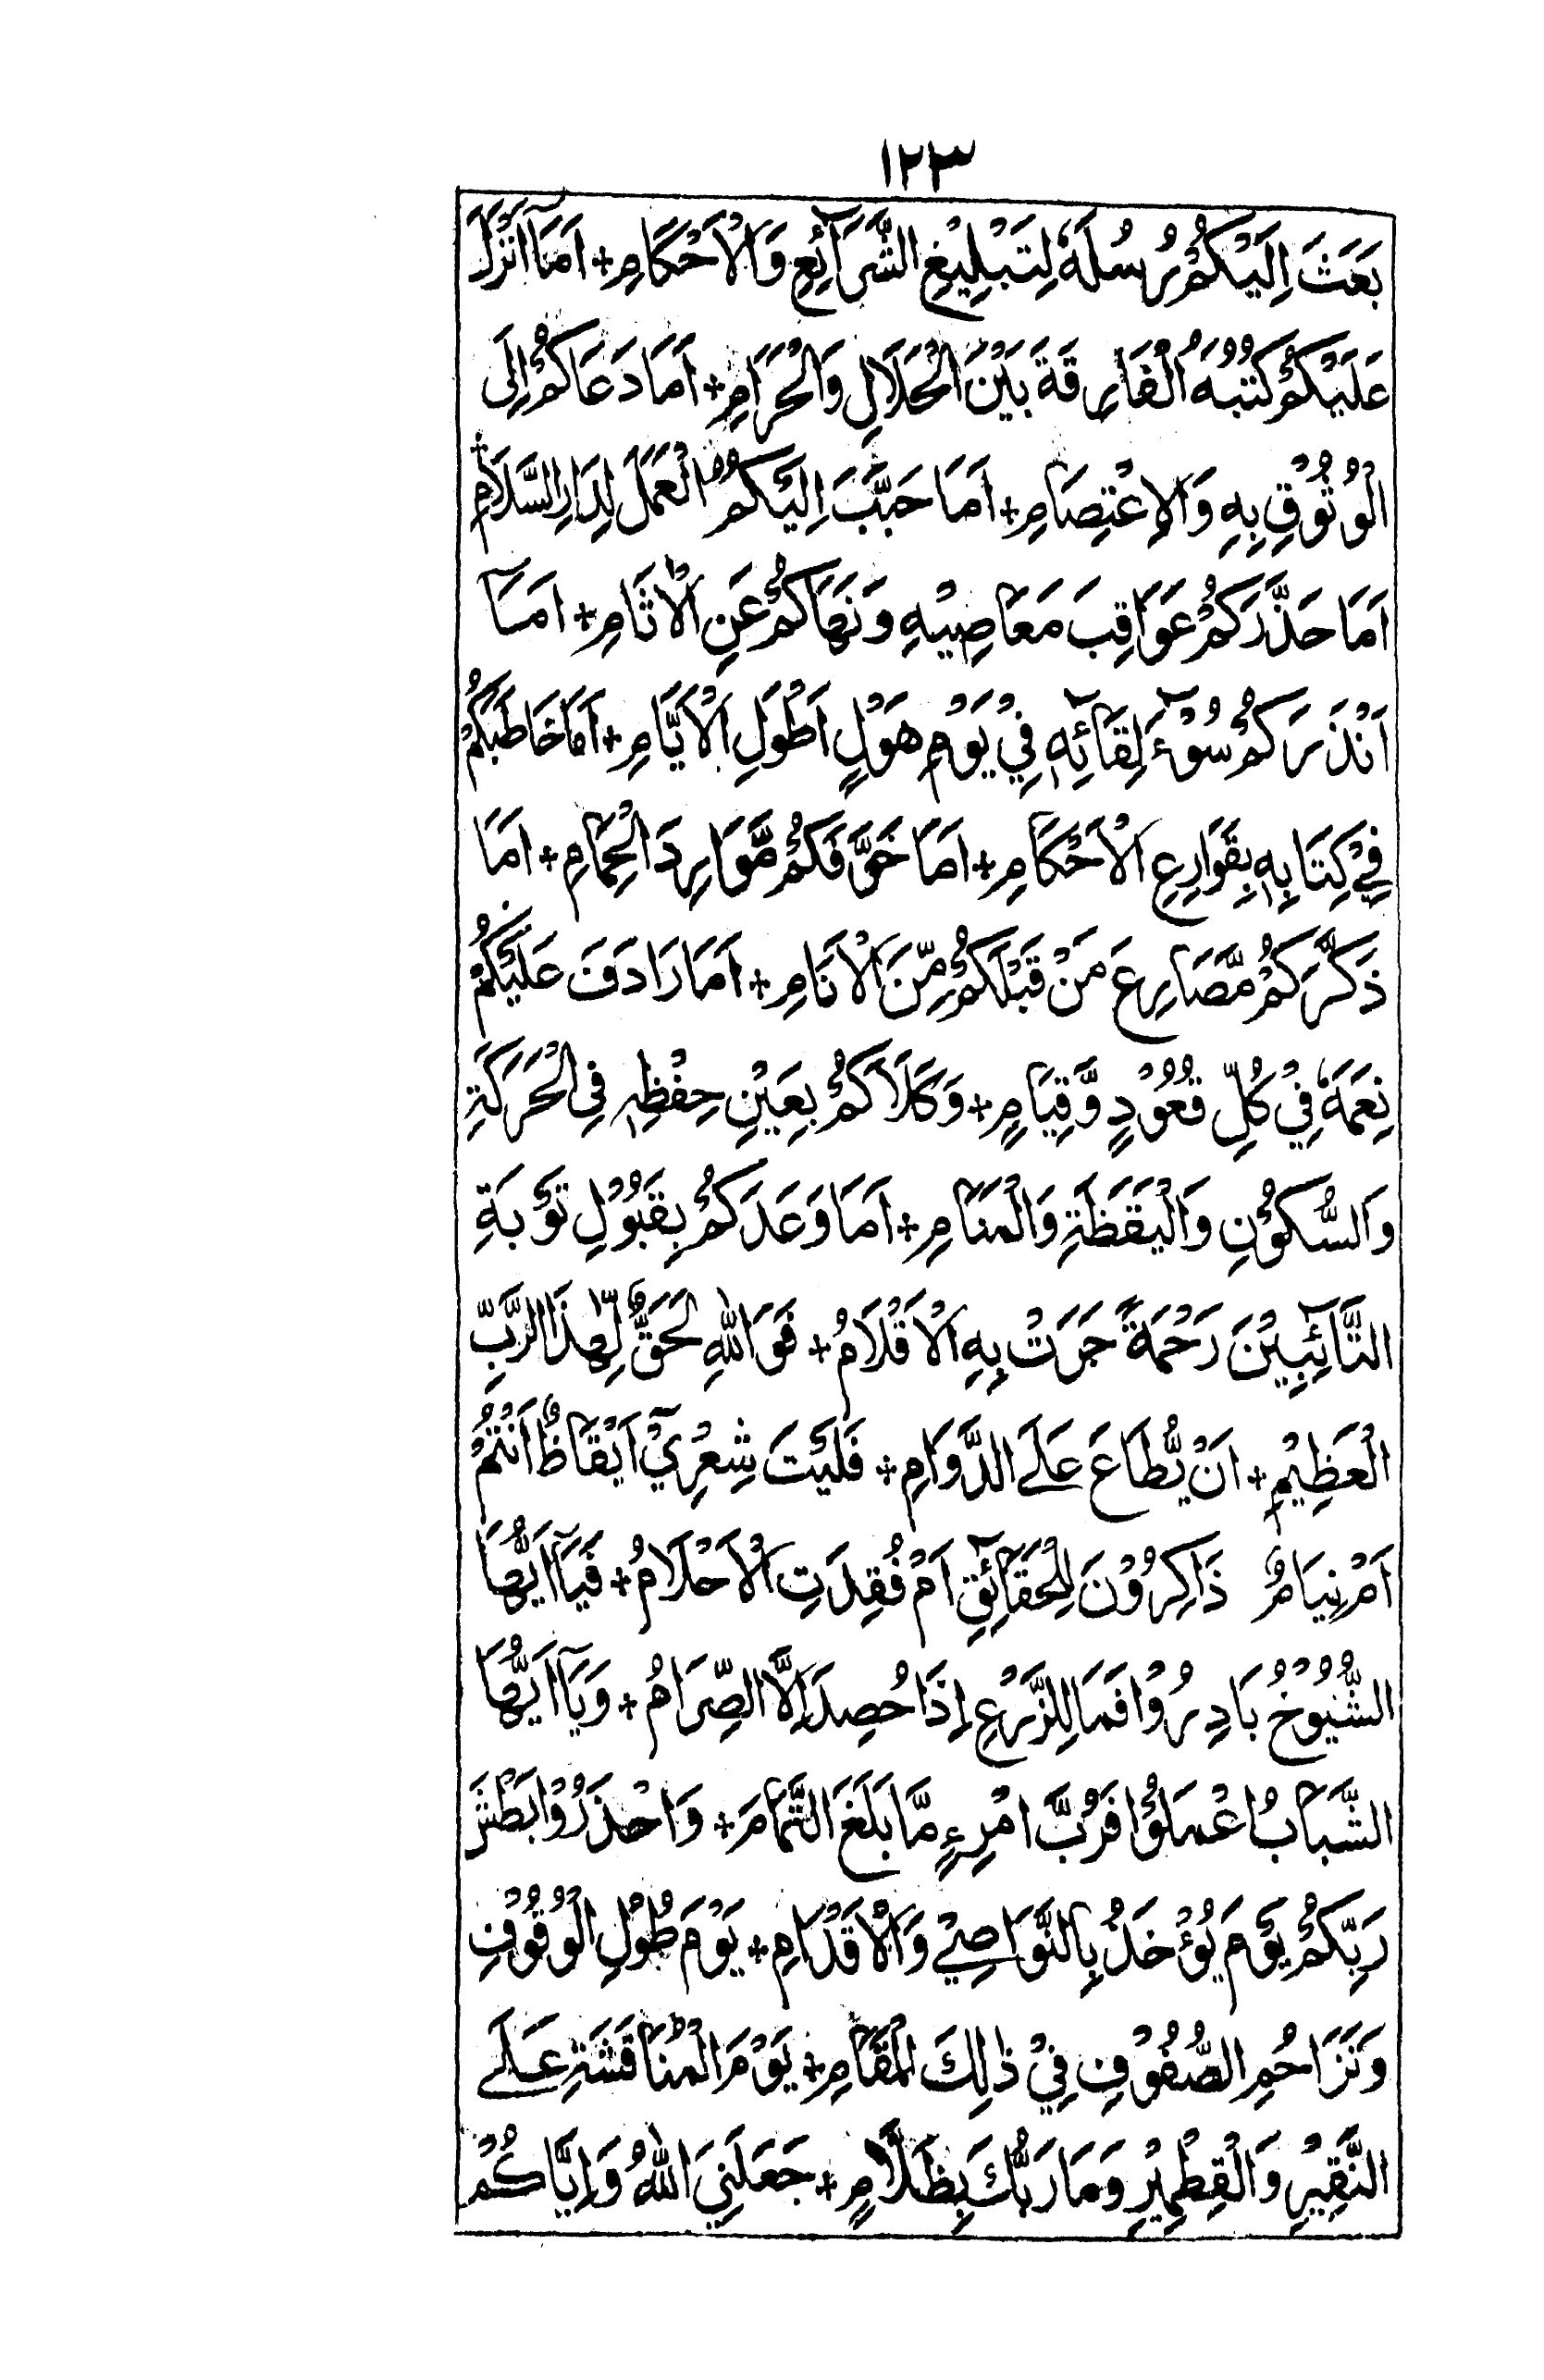 ١٢٣
بَعَثَ اِلَيْكُمْ رُسُلَهٗ لِتَبْلِيْغِ الشَّرَآئِعِ وَالْاَحْكَامِ + اَمَآ اَنْزَلَ
عَلَيْكُمْ كُتُبَهُ الْفَارِقَةَ بَيْنَ الْحَلَالِ وَالْحَرَامِ + اَمَا دَعَاكُمْ اِلَى
الْوُثُوْقِ بِهٖ وَالْاِعْتِصَامِ + اَمَا حَبَّبَ اِلَيْكُمُ الْعَمَلَ لِدَارِ السَّلَامِ +
اَمَا حَذَّرَكُمْ عَوَاقِبَ مَعَاصِيْهِ وَنَهَاكُمْ عَنِ الْاٰثَامِ + اَمَآ
اَنْذَرَكُمْ سُوْٓءَ لِقَآئِهٖ فِيْ يَوْمِ هَوْلٍ اَطْوَلِ الْاَيَّامِ + اَمَا خَاطَبَكُمْ
فِيْ كِتَابِهٖ بِقَوَارِعِ الْاَحْكَامِ + اَمَا خَوَّفَكُمْ مَّوَارِدَ الْحِمَامِ + اَمَا
ذَكَّرَكُمْ مَّصَارِعَ مَنْ قَبْلَكُمْ مِّنَ الْاَنَامِ + اَمَا رَادَفَ عَلَيْكُمْ
نِعَمَهٗ فِيْ كُلِّ قُعُوْدٍ وَّقِيَامٍ + وَكَلَاَكُمْ بِعَيْنِ حِفْظِهٖ فِي الْحَرَكَةِ
وَالسُّكُوْنِ وَالْيَقَظَةِ وَالْمَنَامِ + اَمَا وَعَدَكُمْ بِقَبُوْلِ تَوْبَةِ
التَّآئِبِيْنَ رَحْمَةً جَرَتْ بِهِ الْاَقْلَامُ + فَوَاللهِ لَحَقٌّ لِّهٰذَا الرَّبِّ
الْعَظِيْمِ + اَنْ يُّطَاعَ عَلَى الدَّوَامِ + فَلَيْتَ شِعْرِيْٓ اَيْقَاظٌ اَنْتُمْ
اَمْ نِيَامٌ ذَاكِرُوْنَ لِلْحَقَآئِقِ اَمْ فُقِدَتِ الْاَحْلَامُ + فَيَآ اَيُّهَا
الشُّيُوْخُ بَادِرُوْا فَمَا لِلزَّرْعِ اِذَا حُصِدَ اِلَّا الصِّرَامُ + وَيَآ اَيُّهَا
الشَّبَابُ اعْمَلُوْا فَرُبَّ امْرِءٍ مَّا بَلَغَ التَّمَامَ + وَاحْذَرُوْا بَطْشَ
رَبِّكُمْ يَوْمَ يُؤْخَذُ بِالنَّوَاصِيْ وَالْاَقْدَامِ + يَوْمَ طُوْلِ الْوُقُوْفِ
وَتَزَاحُمِ الصُّفُوْفِ فِيْ ذٰلِكَ الْمَقَامِ + يَوْمَ الْمُنَاقَشَةِ عَلَى
النَّقِيْرِ وَالْقِطْمِيْرِ وَمَا رَبُّكَ بِظَلَّامٍ + جَعَلَنِيَ اللهُ وَاِيَّاكُمْ